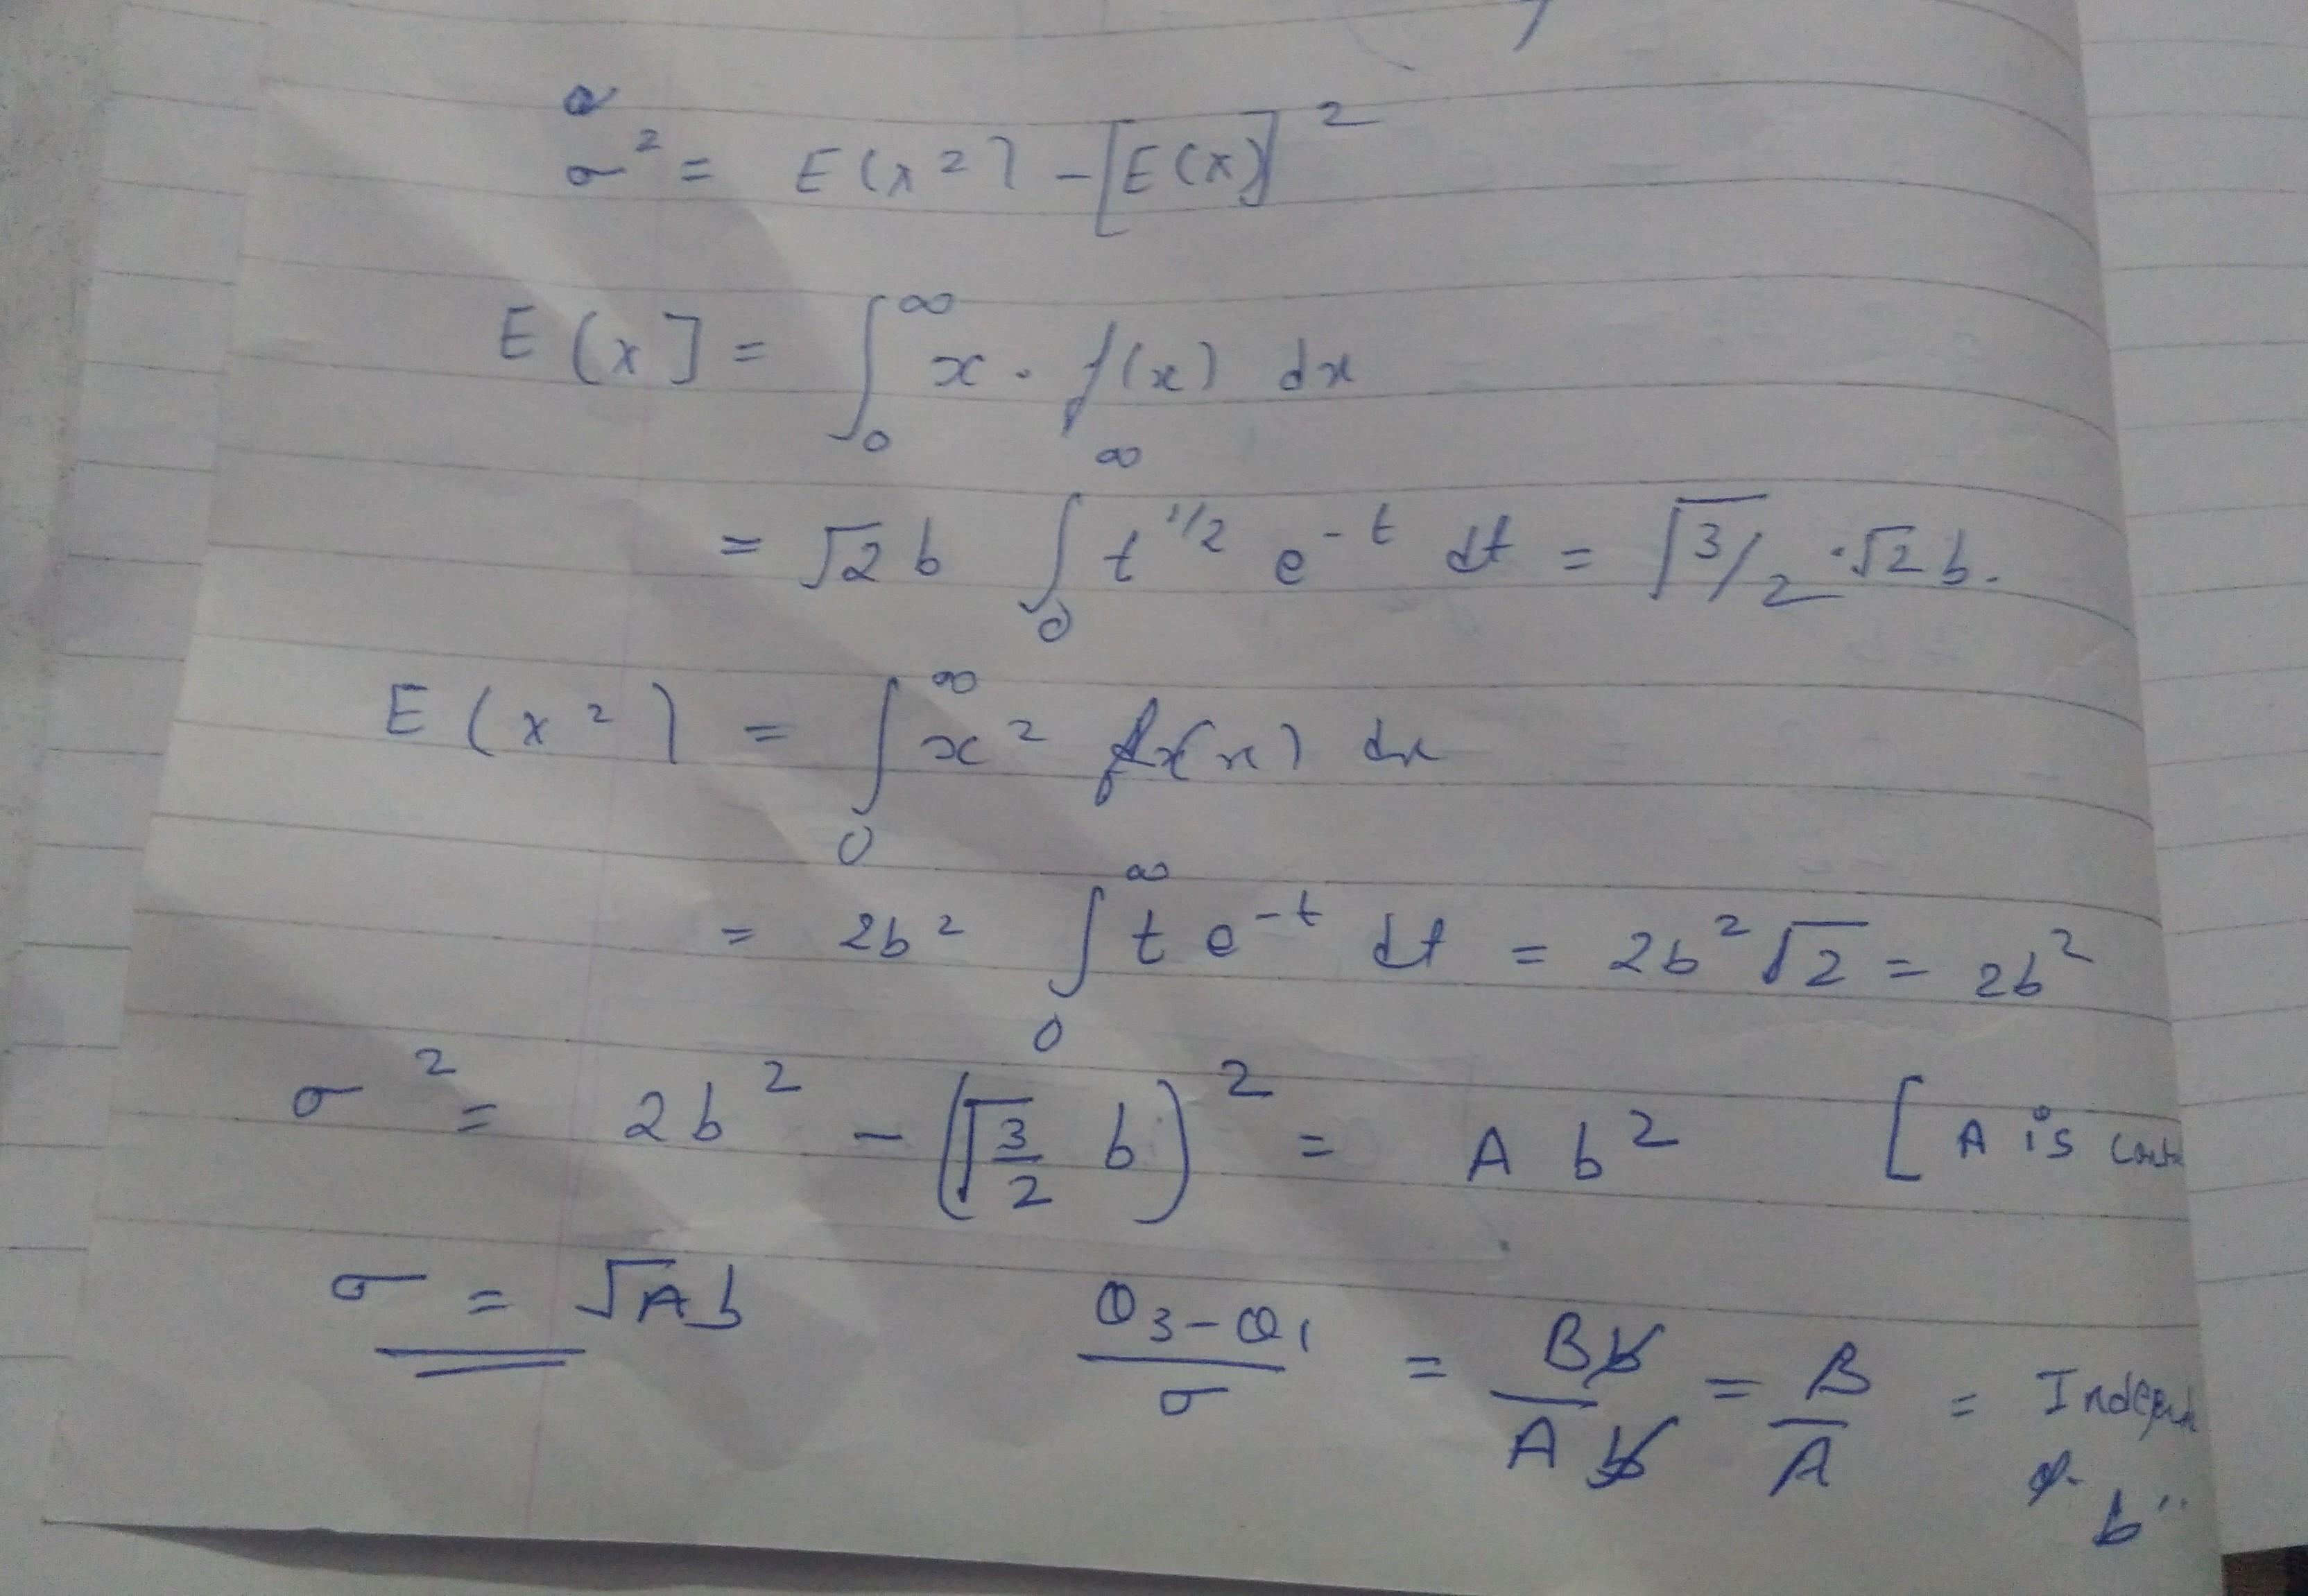 σ² = E(x²) - [E(x)]²
E(x] = ∫₀^∞ x · f(x) dx
= √2 b ∫₀^∞ t^1/2 e^-t dt = √3/2 · √2 b.
E(x²) = ∫₀^∞ x² fx(x) dx
= 2b² ∫₀^∞ t e^-t dt = 2b² √2 = 2b²
σ² = 2b² - (√3/2 b)² = A b² [A is
σ = √A b Q₃-Q₁/σ = Bb/Ab = B/A =
b"